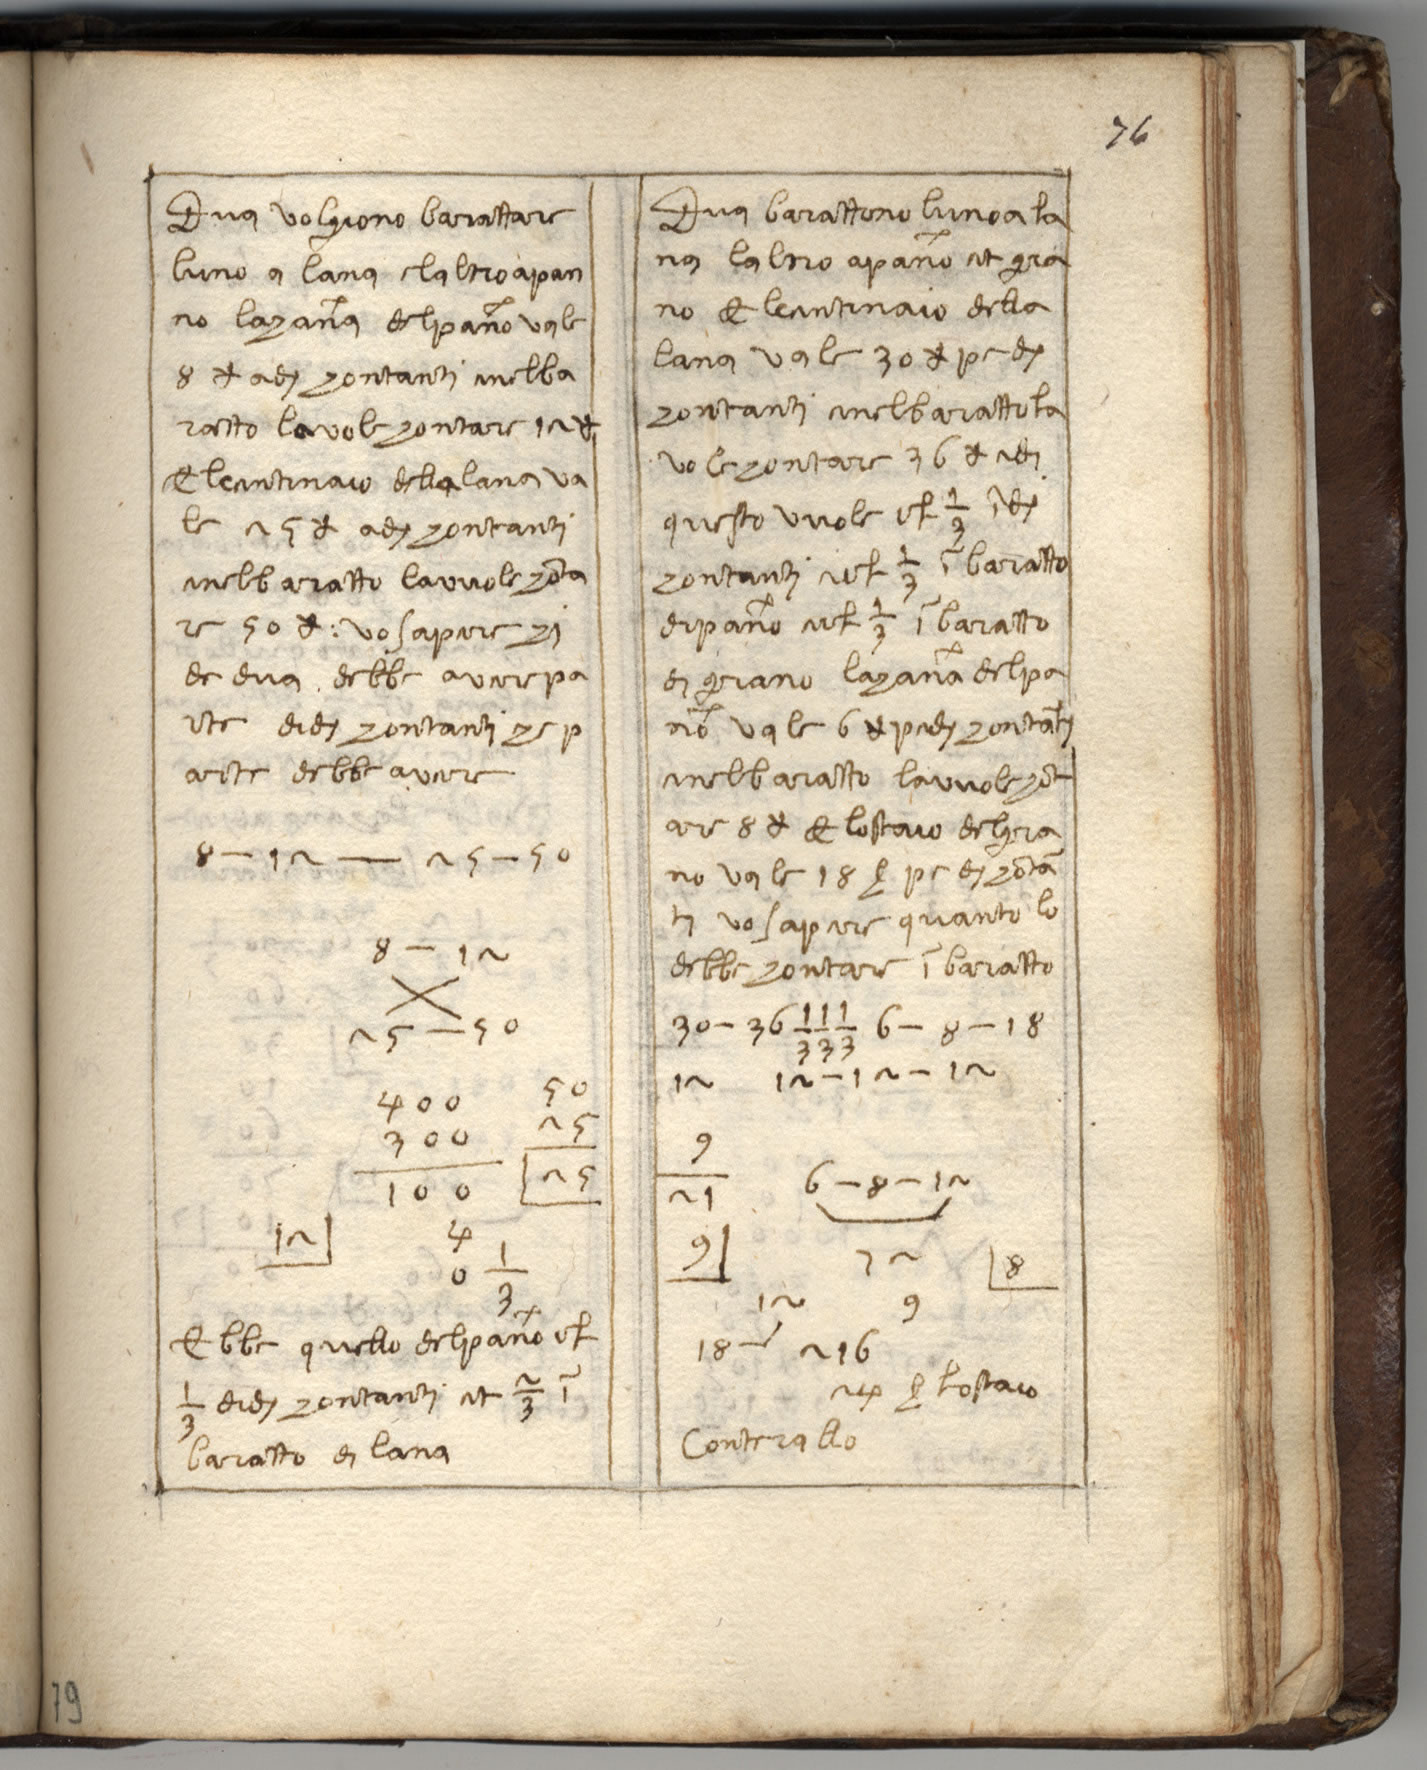 76
Dua volgiono barattare
luno a lana elaltro apan
no lazana del pano vale
8 ∀ a dj zontantj inelba
ratto lavole zontare 12 ∀
E lcentinaio della lana va
le 25 ∀ a dj zontantj
inelbaratto lavuole zota
re 50 ∀: vo sapere zi
de dua debbe avere pa
rte di dj zontantj ze p
arte debbe avere
8 — 12 — 25 — 50
8 — 12
25 — 50
400 50
300 25
100 25
12 4
0 1/3
Ebbe quello delpano el
1/3 di dj zontantj et 2/3 i
baratto di lana
Dua barattono luno a la
na laltro apano et gra
no E lcentinaio della
lana vale 30 ∀ pe dj
zontantj inelbaratto la
vole zontare 36 ∀ e di
questo vuole el 1/3 i dj
zontantj e el 1/3 i baratto
di pano e el 1/3 i baratto
di grano lazana delpa
no vale 6 ∀ pe dj zontatj
inelbaratto lavuole zot
are 8 ∀ E lostaio delgra
no vale 18 pe dj zota
ti vo sapere quanto lo
debbe zontare i baratto
30 — 36 1/3 1/3 1/3 6 — 8 — 18
12 12 — 12 — 12
9
21 6 — 8 — 12
9 72 8
12 9
18 — 216
24 lostaio
Conterallo
79